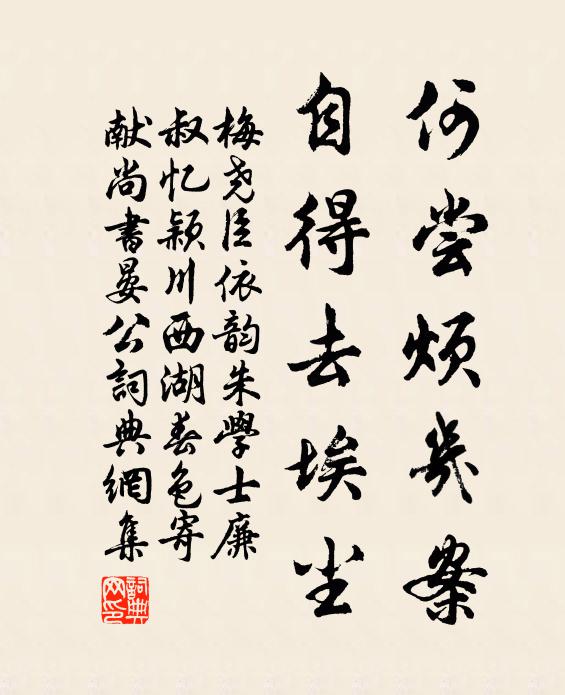 何尝烦几案
自得去埃尘
梅尧臣依韵朱學士廉
叔忆颍川西湖春色寄
献尚書晏公詞典網集
詞典网印